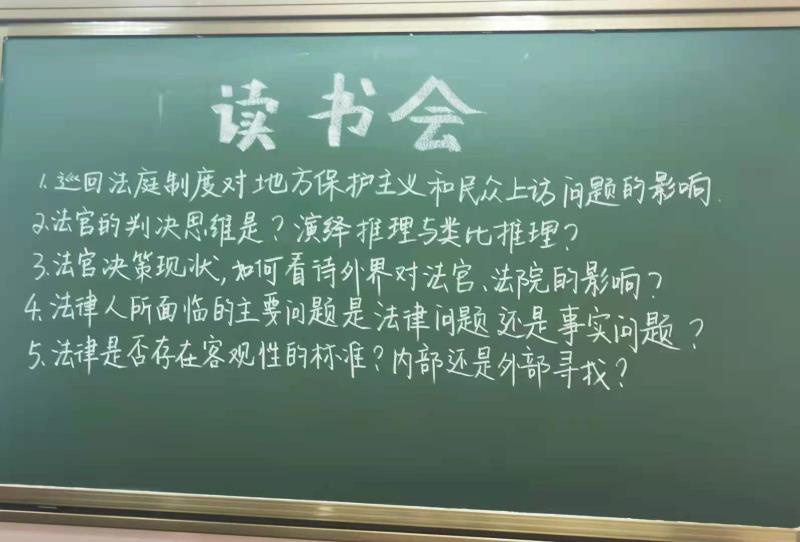 读书会
1.巡回法庭制度对地方保护主义和民众上访问题的影响.
2.法官的判决思维是？演绎推理与类比推理？
3.法官决策现状,如何看待外界对法官、法院的影响？
4.法律人所面临的主要问题是法律问题还是事实问题？
5.法律是否存在客观性的标准？内部还是外部寻找？